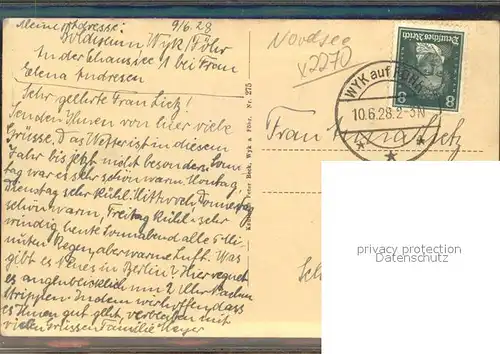 Meine Adresse: 9/6.28
Boldixum Wyk/Föhr
In der Chaussee 1 bei Frau
Elena Andresen
Sehr geehrte Frau Lietz!
Senden Ihnen von hier viele
Grüsse. Das Wetter ist in diesem
Jahr bis jetzt nicht besonders. Sonn
tag war es sehr schön warm, Montag,
Dienstag sehr kühl. Mittwoch, Donnerstag
schön warm, Freitag kühl u. sehr
windig, heute Sonnabend alle 5 Mi-
nuten Regen, aber warme Luft. Was
gibt es Neues in Berlin? Hier regnet
es augenblicklich um 2 Uhr Nachm
Strippen. Indem wir hoffen, dass
es Ihnen gut geht, verbleiben mit
vielen Grüssen Familie Meyer
Peter Beck, Wyk a. Föhr. Nr. 275
Nordsee
x2270
Deutsches Reich
8 8
WYK auf FÖHR
10.6.28.2-3N
Frau Lietz
privacy protection
Datenschutz